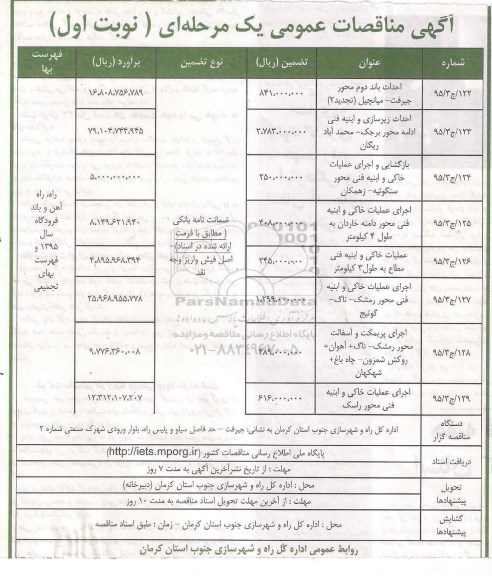 آگهی مناقصات عمومی یک مرحله‌ای ( نوبت اول)
شماره عنوان تضمین (ریال) نوع تضمین برآورد (ریال) فهرست بها
۹۵/۳/ج/۱۲۲ احداث باند دوم محور جیرفت- میانچیل (تجدید۲) ۸۴۱.۰۰۰.۰۰۰ ۱۶.۸۰۸.۷۵۶.۷۸۹
۹۵/۳/ج/۱۲۳ احداث زیرسازی و ابنیه فنی ادامه محور برجک- محمد آباد ریگان ۲.۷۸۳.۰۰۰.۰۰۰ ۷۹.۱۰۴.۷۴۴.۹۴۵
۹۵/۳/ج/۱۲۴ بازگشایی و اجرای عملیات خاکی و ابنیه فنی محور سنگوئیه- زهمکان ۲۵۰.۰۰۰.۰۰۰ ۵.۰۰۰.۰۰۰.۰۰۰
۹۵/۳/ج/۱۲۵ اجرای عملیات خاکی و ابنیه فنی محور دامنه خاردان به طول ۴ کیلومتر ۴۰۸.۰۰۰.۰۰۰ ۸.۱۴۹.۶۲۱.۹۴۰
۹۵/۳/ج/۱۲۶ عملیات خاکی و ابنیه فنی مطاع به طول۳ کیلومتر ۲۴۵.۰۰۰.۰۰۰ ۴.۸۹۵.۹۶۸.۳۹۴
۹۵/۳/ج/۱۲۷ اجرای عملیات خاکی و ابنیه فنی محور رمشک- تاک- گوتیچ ۱.۲۹۹.۰۰۰.۰۰۰ ۲۵.۹۶۸.۹۵۵.۷۷۸
۹۵/۳/ج/۱۲۸ اجرای پریمکت و آسفالت محور رمشک- تاک+ آهوان+ روکش شمزون- چاه باغ+ شهکهان ۴۸۹.۰۰۰.۰۰۰ ۹.۷۷۶.۳۶۰.۰۰۸
۹۵/۳/ج/۱۲۹ اجرای عملیات خاکی و ابنیه فنی محور راسک ۶۱۶.۰۰۰.۰۰۰ ۱۲.۳۱۲.۱۰۷.۲۰۷
ضمانت نامه بانکی
( مطابق با فرمت
ارائه شده در اسناد)-
اصل فیش واریز وجه
نقد
راه، راه
آهن و باند
فرودگاه
سال
۱۳۹۵ و
فهرست
بهای
تجمیعی
ParsNamadData
پایگاه اطلاع رسانی مناقصه و مزایده
۰۲۱-۸۸۳۴۹۶۷۰
دستگاه مناقصه گزار اداره کل راه و شهرسازی جنوب استان کرمان به نشانی: جیرفت - حد فاصل سیلو و پلیس راه، بلوار ورودی شهرک صنعتی شماره ۲
دریافت اسناد پایگاه ملی اطلاع رسانی مناقصات کشور (http://iets.mporg.ir)
مهلت : از تاریخ نشرآخرین آگهی به مدت ۷ روز
تحویل پیشنهادها محل : اداره کل راه و شهرسازی جنوب استان کرمان (دبیرخانه)
مهلت : از آخرین مهلت تحویل اسناد مناقصه به مدت ۱۰ روز
گشایش پیشنهادها محل : اداره کل راه و شهرسازی جنوب استان کرمان - زمان : طبق اسناد مناقصه
روابط عمومی اداره کل راه و شهرسازی جنوب استان کرمان